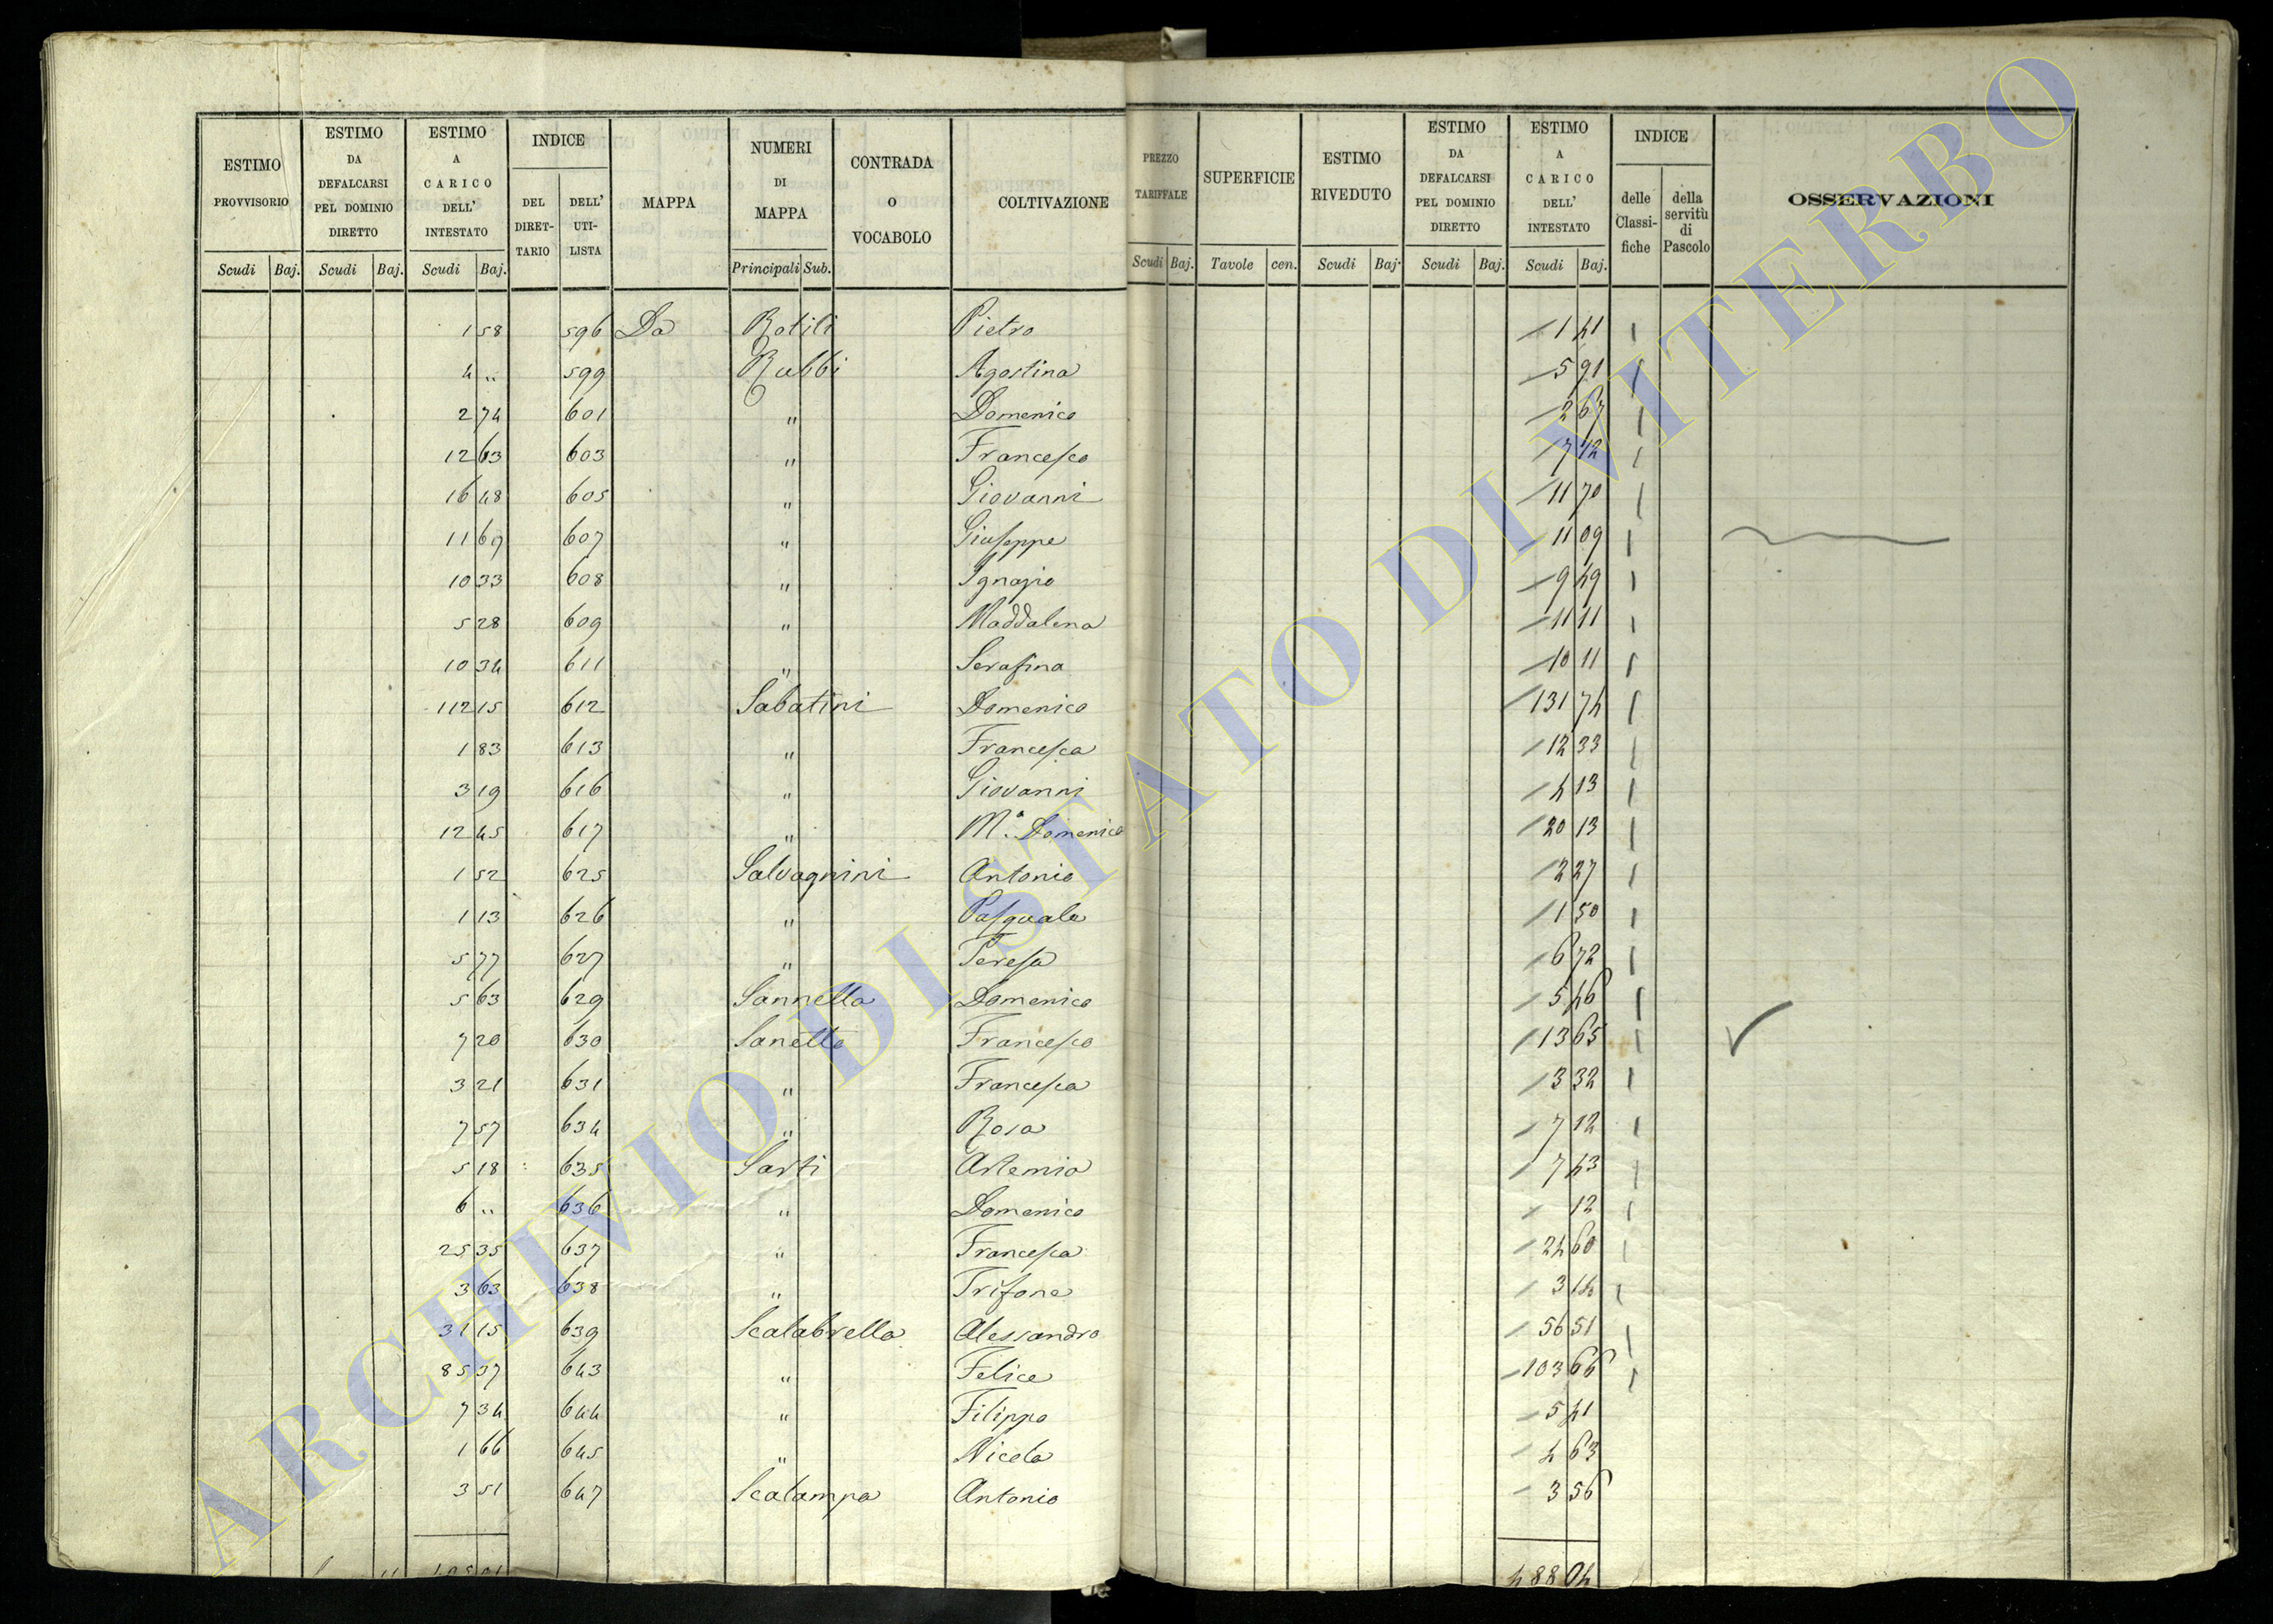 ESTIMO PROVVISORIO Scudi Baj.
ESTIMO DA DEFALCARSI PEL DOMINIO DIRETTO Scudi Baj.
ESTIMO A CARICO DELL' INTESTATO Scudi Baj.
INDICE DEL DIRET- TARIO DELL' UTI- LISTA
MAPPA
NUMERI DI MAPPA Principali Sub.
CONTRADA O VOCABOLO
COLTIVAZIONE
PREZZO TARIFFALE Scudi Baj.
SUPERFICIE Tavole cen.
ESTIMO RIVEDUTO Scudi Baj.
ESTIMO DA DEFALCARSI PEL DOMINIO DIRETTO Scudi Baj.
ESTIMO A CARICO DELL' INTESTATO Scudi Baj.
INDICE delle Classi- fiche della servitù di Pascolo
OSSERVAZIONI
1 58 596 Da Rotili Pietro 1 41
4 " 599 Rubbi Agostina 5 91
2 74 601 " Domenico 2 67
12 63 603 " Francesco 7 12
16 48 605 " Giovanni 11 70
11 69 607 " Giuseppe 11 09
10 33 608 " Ignazio 9 49
5 28 609 " Maddalena 11 11
10 34 611 " Serafina 10 11
112 15 612 Sabatini Domenico 131 74
1 83 613 " Francesca 12 33
3 19 616 " Giovanni 4 13
12 45 617 " M.a Domenica 20 13
1 52 625 Salvagnini Antonio 2 27
1 13 626 " Pasquale 1 50
5 77 627 " Teresa 6 72
5 63 629 Sannella Domenico 5 46
7 20 630 Sanetto Francesco 13 65
3 21 631 " Francesca 3 32
7 57 634 " Rosa 7 12
5 18 635 Sarti Artemio 7 43
6 " 636 " Domenico 12
25 35 637 " Francesca 24 60
3 63 638 " Trifone 3 14
31 15 639 Scalabrella Alessandro 56 51
85 37 643 " Felice 103 66
7 34 644 " Filippo 5 41
1 66 645 " Nicola 4 63
3 51 647 Scalampa Antonio 3 56
488 04
ARCHIVIO DI STATO DI VITERBO